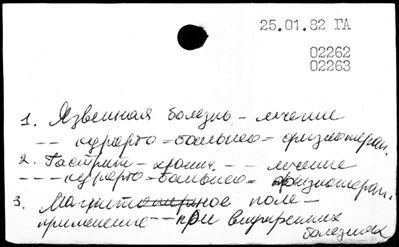 25.01.82 ГА
02262
02263
1. Язвенная болезнь - лечение
-- курорто-бальнео-физиотерап.
2. Гастрит - хронич. -- лечение
-- курорто-бальнео-физиотерап.
3. Магнитное поле -
применение -- при внутренних
болезнях